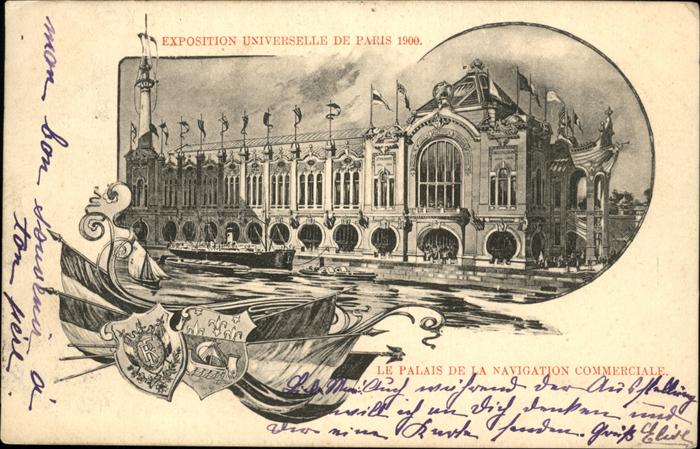 EXPOSITION UNIVERSELLE DE PARIS 1900.
LE PALAIS DE LA NAVIGATION COMMERCIALE.
mon bon souvenir à
ton père.
Auch während der Ausstellung
will ich an Dich denken und
Dir eine Karte senden. Gruß
RF